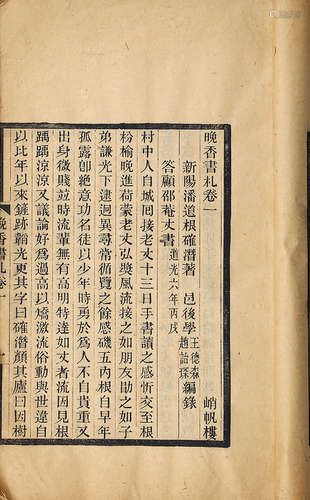 晚香書札卷一
新陽潘道根確潛著 邑後學王德森趙詒琛編錄 峭帆樓
答顧邵菴丈書道光六年丙戌
村中人自城囘接老丈十三日手書讀之感忻交至根
枌榆晚進荷蒙老丈弘奬風流接之如朋友勖之如子
弟謙光下逮迥異尋常循覽之餘感礒五內根自早年
孤露卽絶意功名徒以少年時勇於為人不自貴重又
出身微賤竝時流輩無有高明特達如丈者流因見根
踽踽涼涼又議論好為過高以矯激流俗動與世違自
以比年以來鏟跡韜光更其字曰確潛顏其廬曰因樹
晚香書札卷一